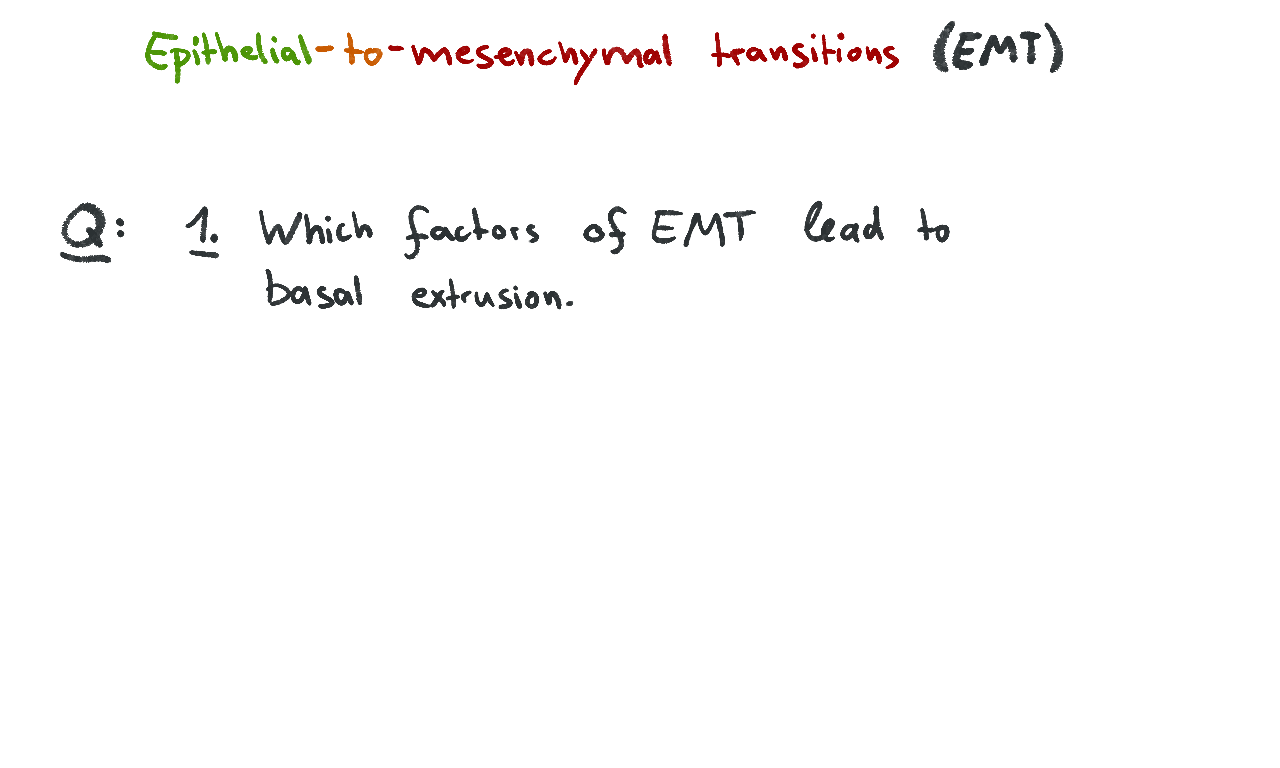 Epithelial-to-mesenchymal transitions (EMT)
Q: 1. Which factors of EMT lead to
basal extrusion.